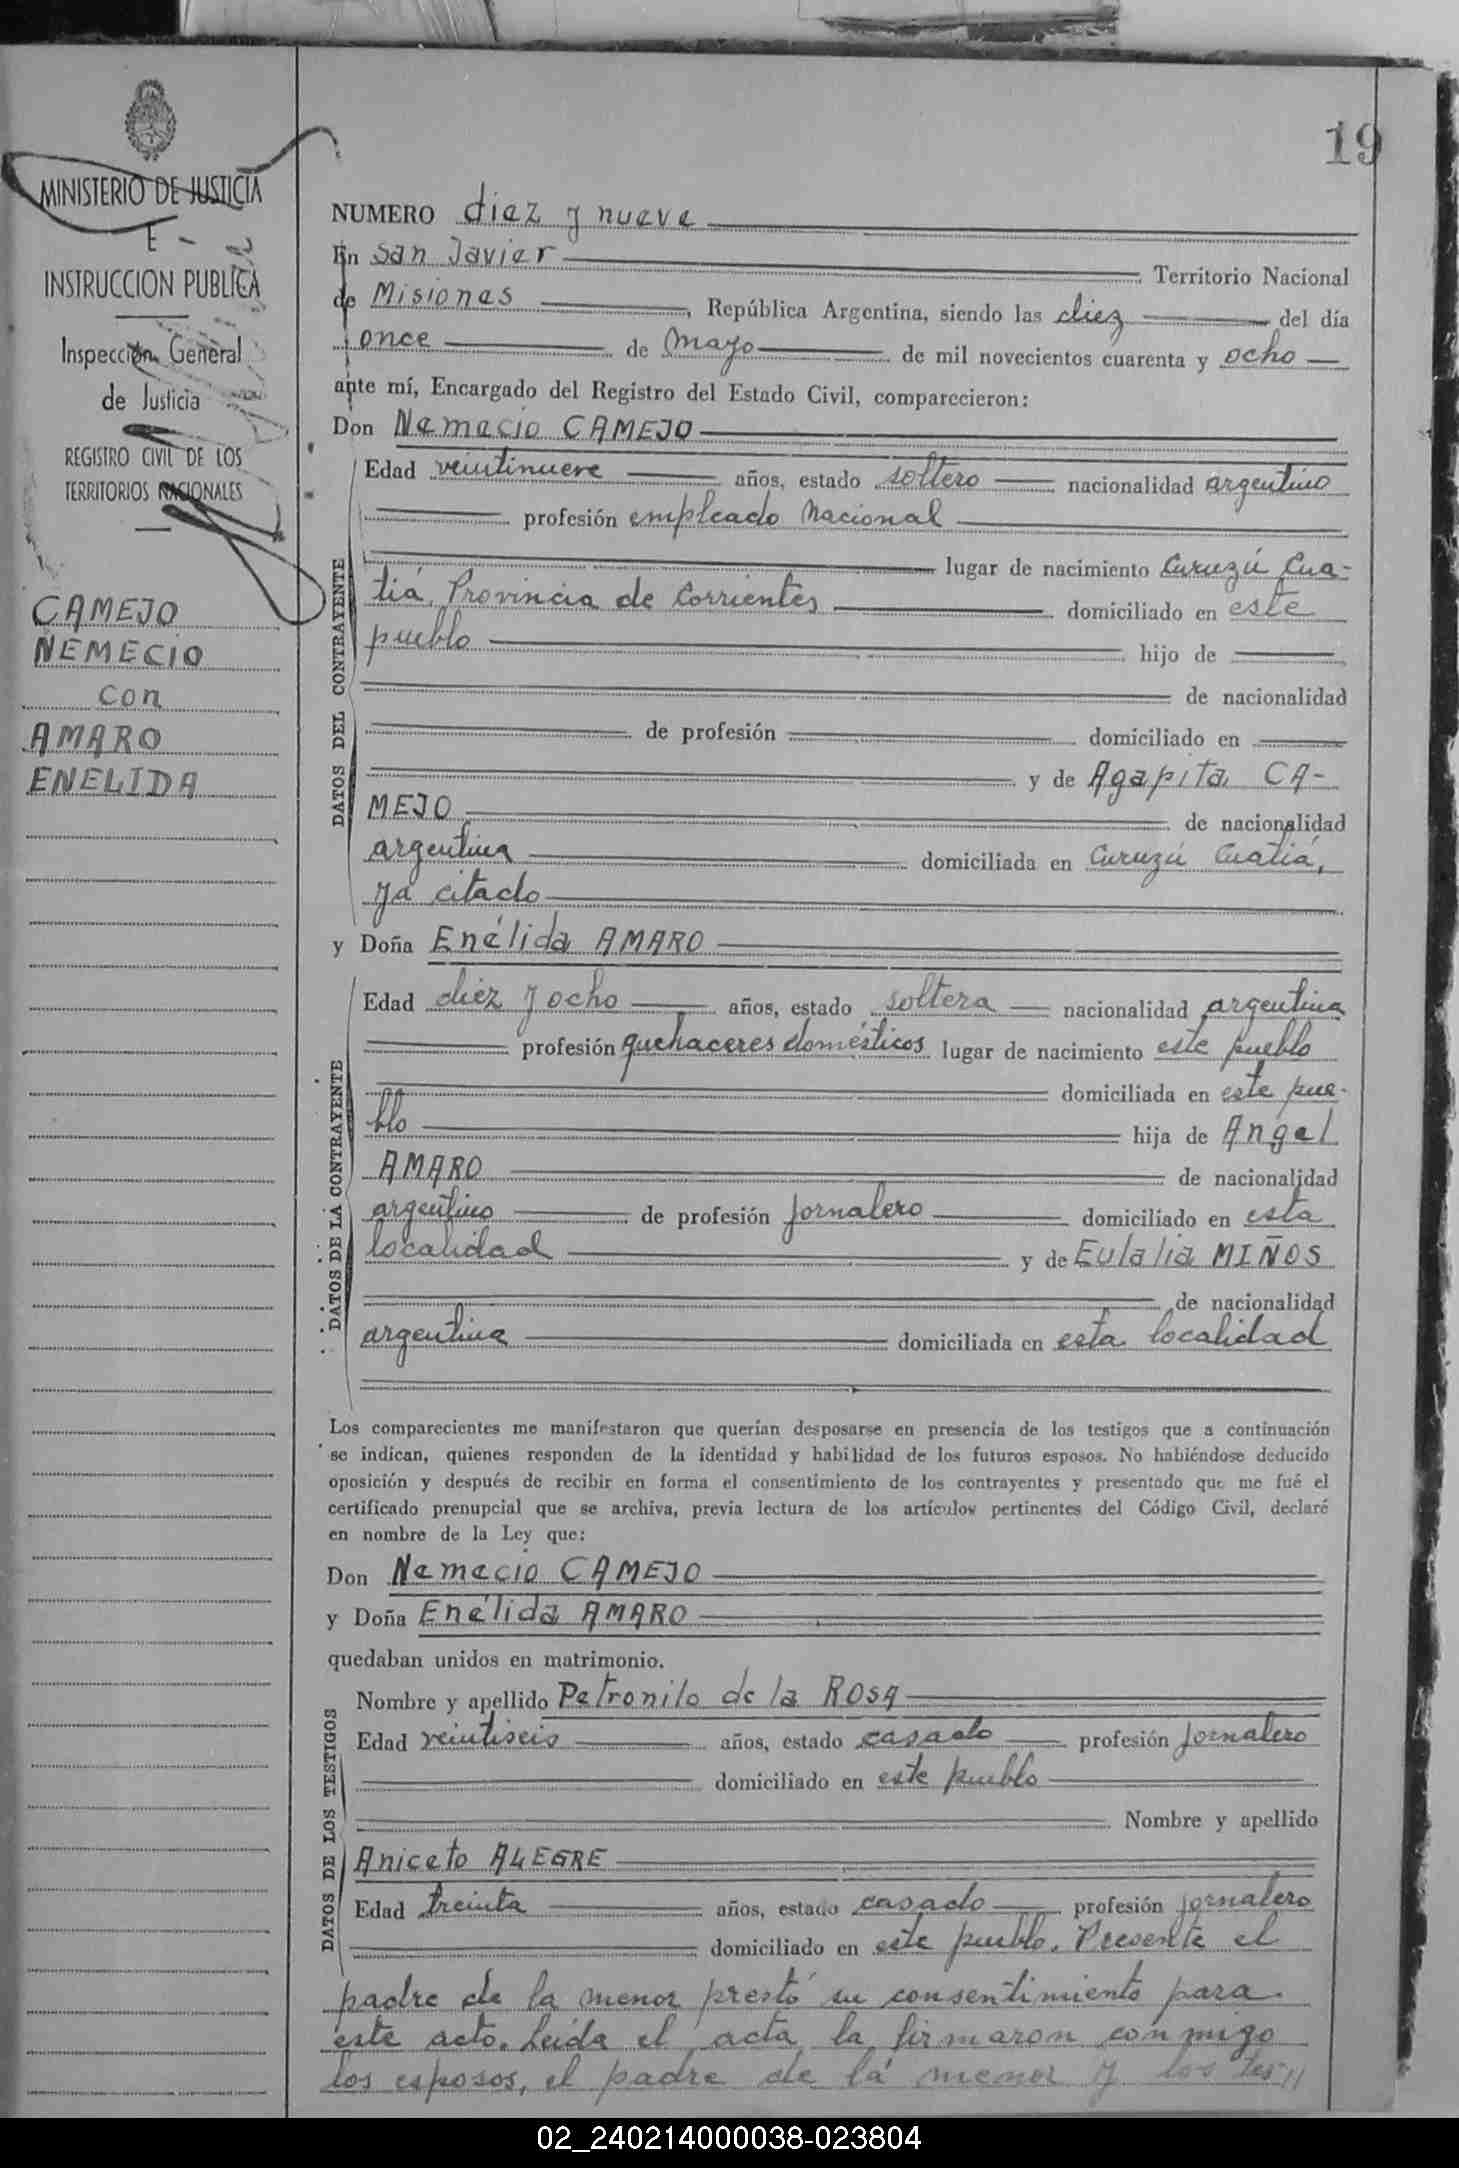 19
MINISTERIO DE JUSTICIA
E
INSTRUCCION PUBLICA
Inspección General
de Justicia
REGISTRO CIVIL DE LOS
TERRITORIOS NACIONALES
CAMEJO
NEMECIO
con
AMARO
ENELIDA
NUMERO diez y nueve
En San Javier Territorio Nacional
de Misiones, República Argentina, siendo las diez del día
once de Mayo de mil novecientos cuarenta y ocho
ante mí, Encargado del Registro del Estado Civil, comparecieron:
Don Nemecio CAMEJO
DATOS DEL CONTRAYENTE
Edad veintinueve años, estado soltero nacionalidad argentino
profesión empleado Nacional
lugar de nacimiento Curuzú Cua-
tiá, Provincia de Corrientes domiciliado en este
pueblo hijo de
de nacionalidad
de profesión domiciliado en
y de Agapita CA-
MEJO de nacionalidad
argentina domiciliada en Curuzú Cuatiá,
ya citado
y Doña Enélida AMARO
DATOS DE LA CONTRAYENTE
Edad diez y ocho años, estado soltera nacionalidad argentina
profesión quehaceres domésticos lugar de nacimiento este pueblo
domiciliada en este pue-
blo hija de Angel
AMARO de nacionalidad
argentino de profesión jornalero domiciliado en esta
localidad y de Eulalia MIÑOS
de nacionalidad
argentina domiciliada en esta localidad
Los comparecientes me manifestaron que querían desposarse en presencia de los testigos que a continuación
se indican, quienes responden de la identidad y habilidad de los futuros esposos. No habiéndose deducido
oposición y después de recibir en forma el consentimiento de los contrayentes y presentado que me fué el
certificado prenupcial que se archiva, previa lectura de los artículos pertinentes del Código Civil, declaré
en nombre de la Ley que:
Don Nemecio CAMEJO
y Doña Enélida AMARO
quedaban unidos en matrimonio.
DATOS DE LOS TESTIGOS
Nombre y apellido Petronilo de la ROSA
Edad veintiseis años, estado casado profesión jornalero
domiciliado en este pueblo
Nombre y apellido
Aniceto ALEGRE
Edad treinta años, estado casado profesión jornalero
domiciliado en este pueblo. Presente el
padre de la menor prestó su consentimiento para
este acto. Leída el acta la firmaron conmigo
los esposos, el padre de la menor y los tes//
02_240214000038-023804